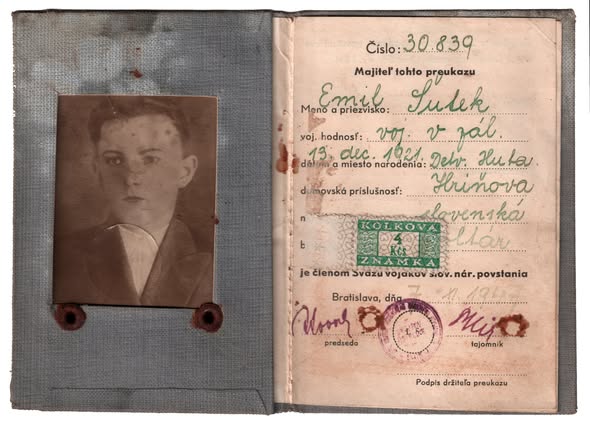 Číslo: 30.839
Majiteľ tohto preukazu
Meno a priezvisko: Emil Sutek
voj. hodnosť: voj. v zál.
13. dec. 1921. Detv. Huta.
dátum a miesto narodenia:
domovská príslušnosť: Hriňova
n slovenská
b
KOLKOVÁ
4
Kčs
ZNÁMKA
je členom Sväzu vojakov slov. nár. povstania
Bratislava, dňa
predseda tajomník
Podpis držiteľa preukazu